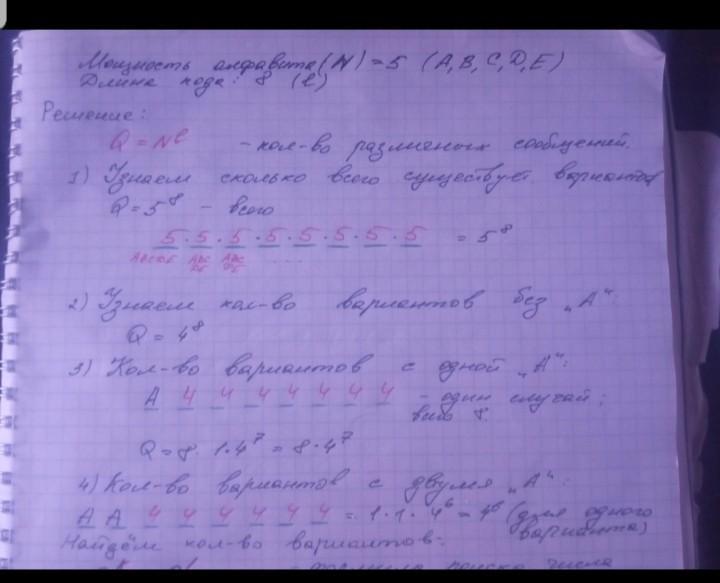 Мощность алфавита (N) = 5 (A, B, C, D, E)
Длина кода: 8 (l)
Решение:
Q = N^l - кол-во различных сообщений.
1) Узнаем сколько всего существует вариантов
Q = 5^8 - всего
5 · 5 · 5 · 5 · 5 · 5 · 5 · 5 = 5^8
ABCDE ABC DE ABC DE ...
2) Узнаем кол-во вариантов без „А“:
Q = 4^8
3) Кол-во вариантов с одной „А“:
A 4 4 4 4 4 4 4 - один случай;
всего 8.
Q = 8 · 1 · 4^7 = 8 · 4^7
4) Кол-во вариантов с двумя „А“:
A A 4 4 4 4 4 4 = 1 · 1 · 4^6 = 4^6 (для одного
варианта)
Найдём кол-во вариантов:
формула поиска числа